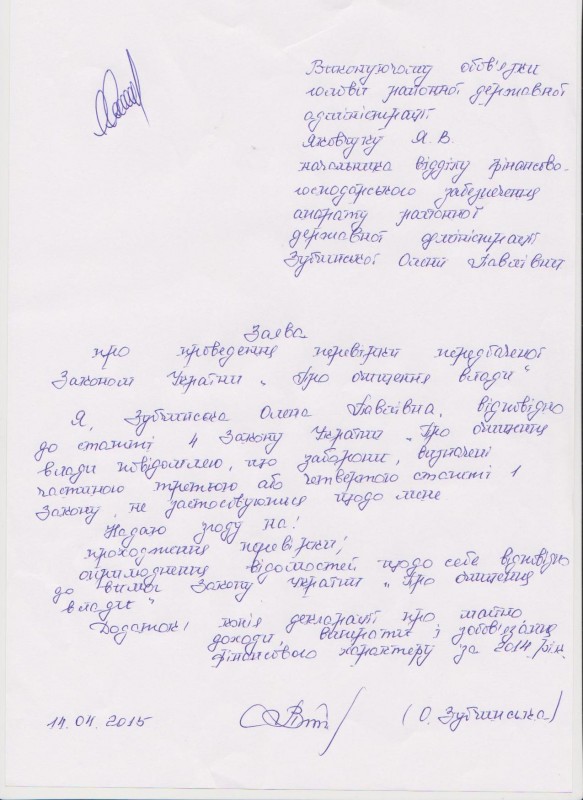 Виконуючому обов'язки
голови районної державної
адміністрації
Яковчуку Я. В.
начальника відділу фінансово-
господарського забезпечення
апарату районної
державної адміністрації
Зубчинської Олени Павлівни
Заява
про проведення перевірки передбаченої
Законом України „Про очищення влади“
Я, Зубчинська Олена Павлівна, відповідно
до статті 4 Закону України „Про очищення
влади повідомляю, що заборони, визначені
частиною третьою або четвертою статті 1
Закону, не застосовуються щодо мене
Надаю згоду на:
проходження перевірки;
оприлюднення відомостей щодо себе відповідно
до вимог Закону України „Про очищення
влади“
Додаток: копія декларації про майно
доходи, витрати і зобов'язання
фінансового характеру за 2014 рік
14.04.2015 (О. Зубчинська)